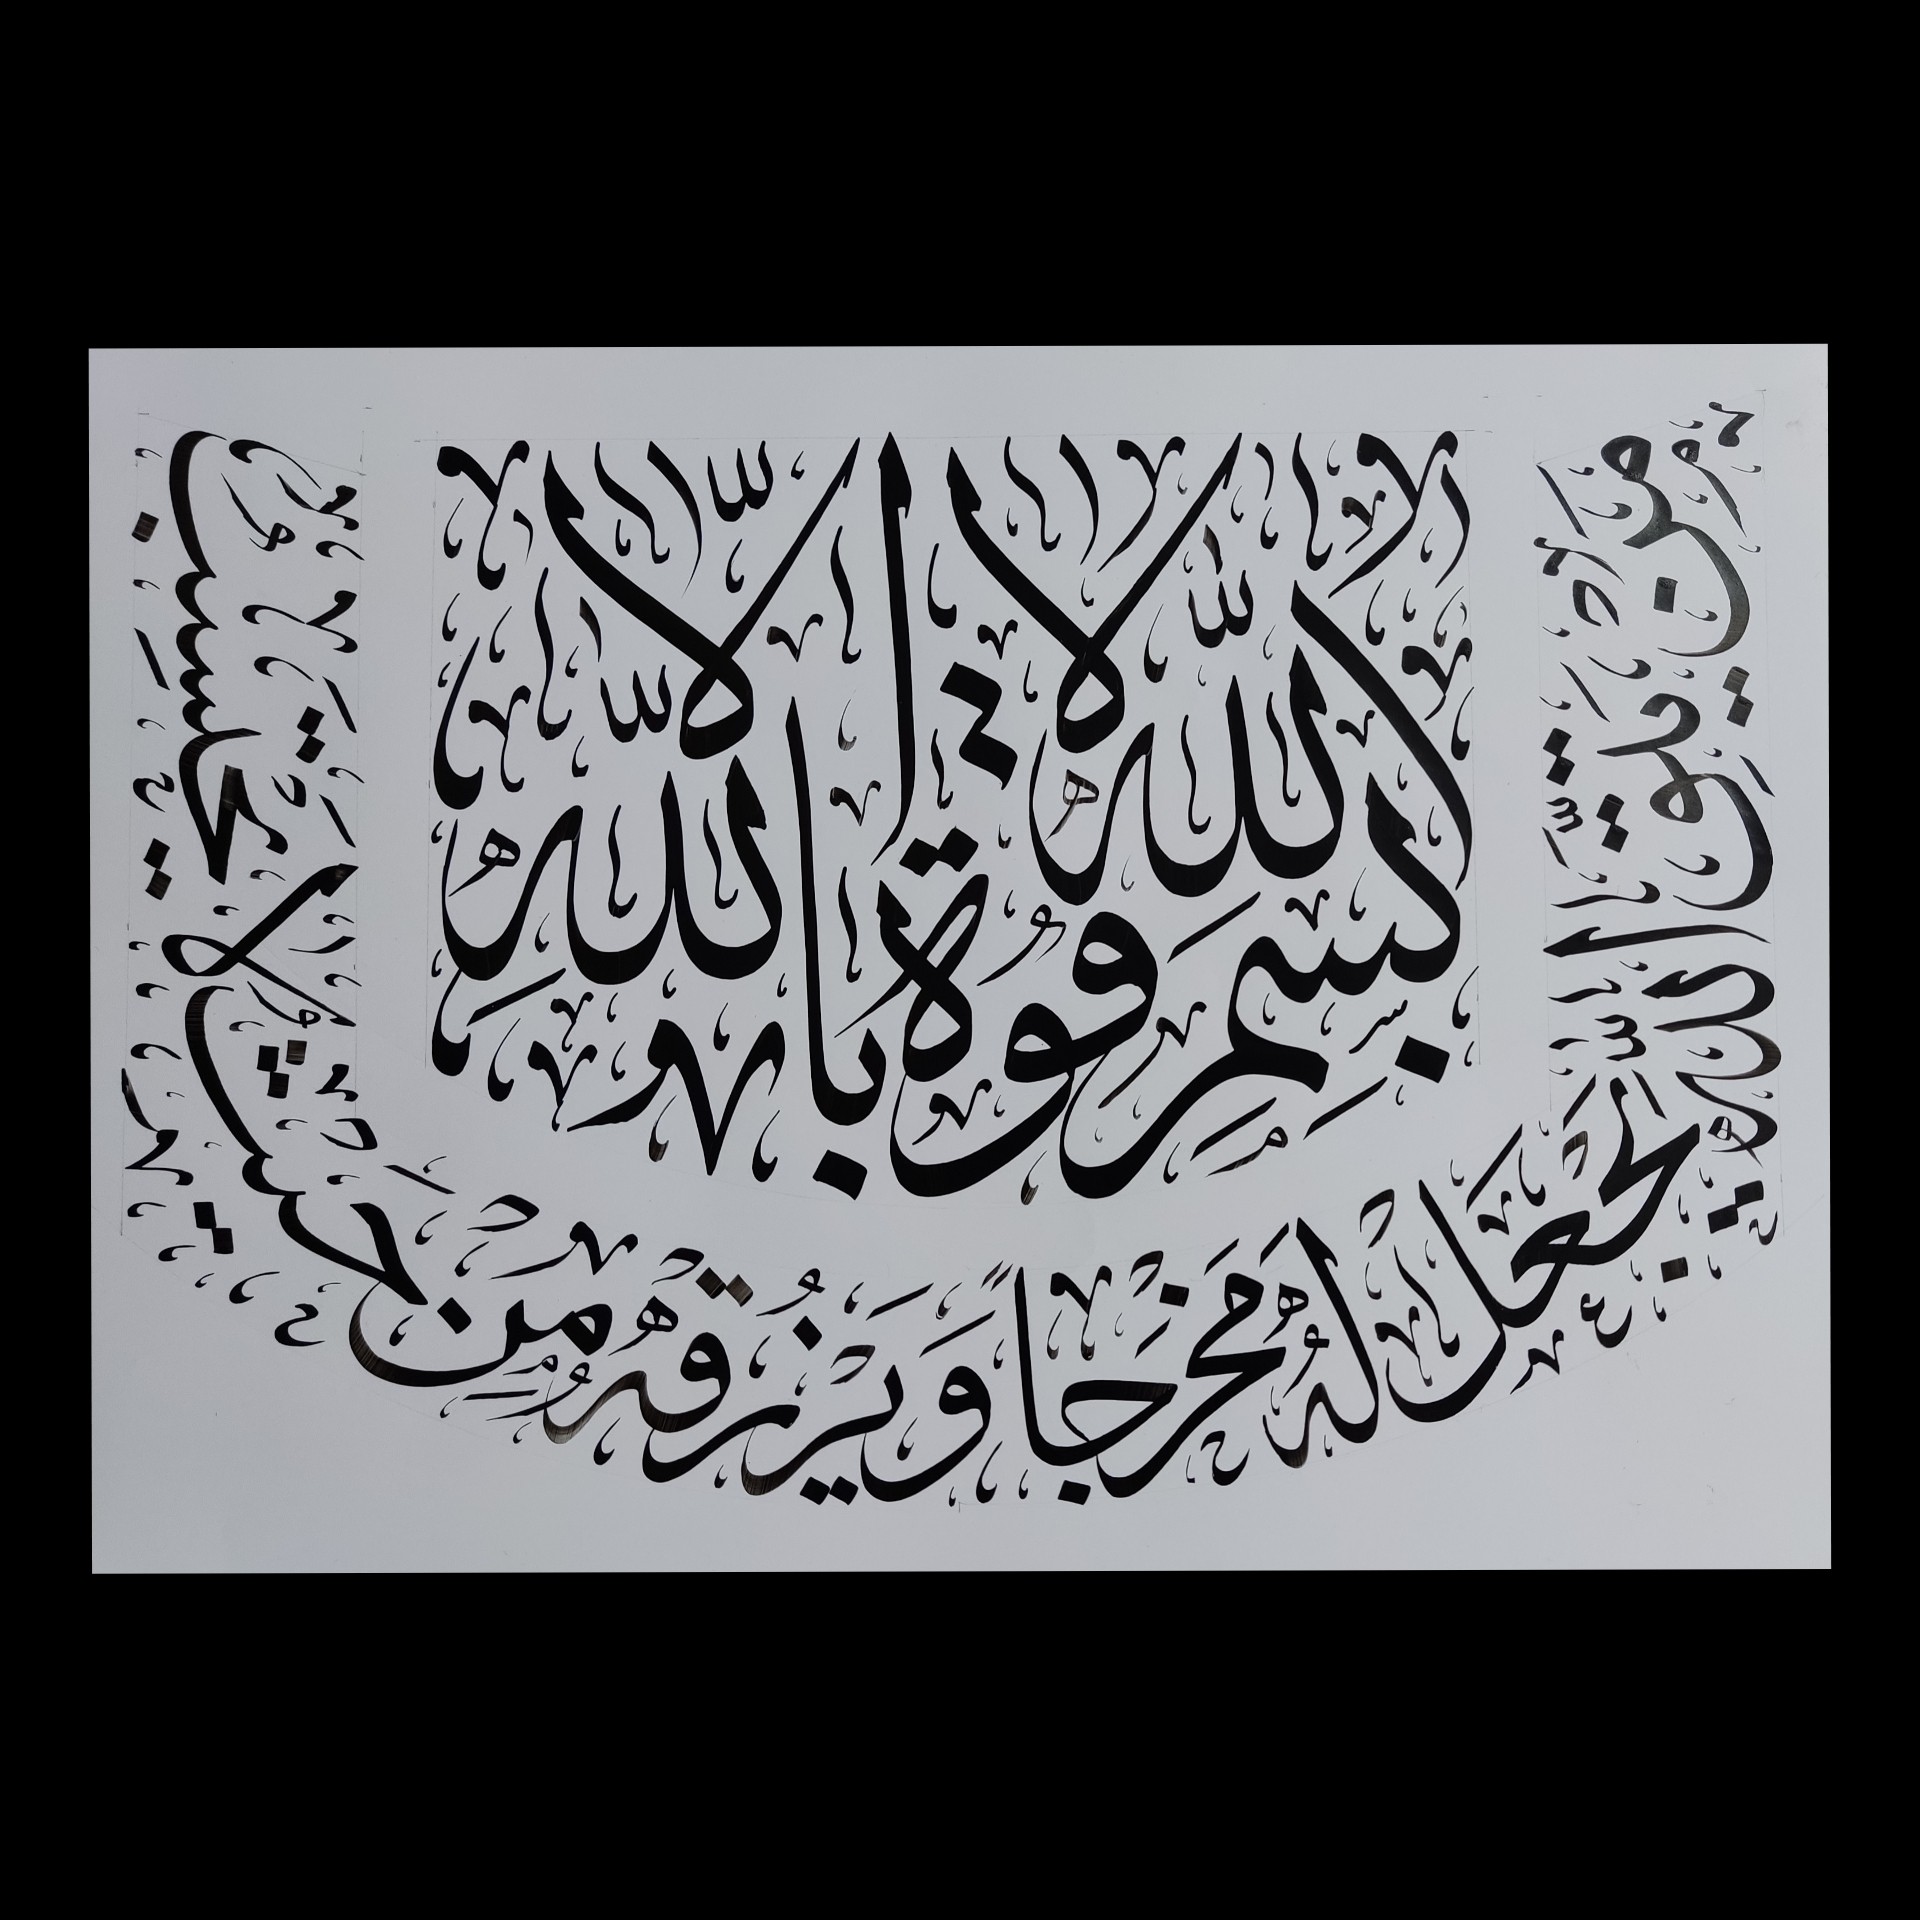 بسم الله لا قوة إلا بالله
ومن يتق الله
يجعل له مخرجا ويرزقه من
حيث لا يحتسب